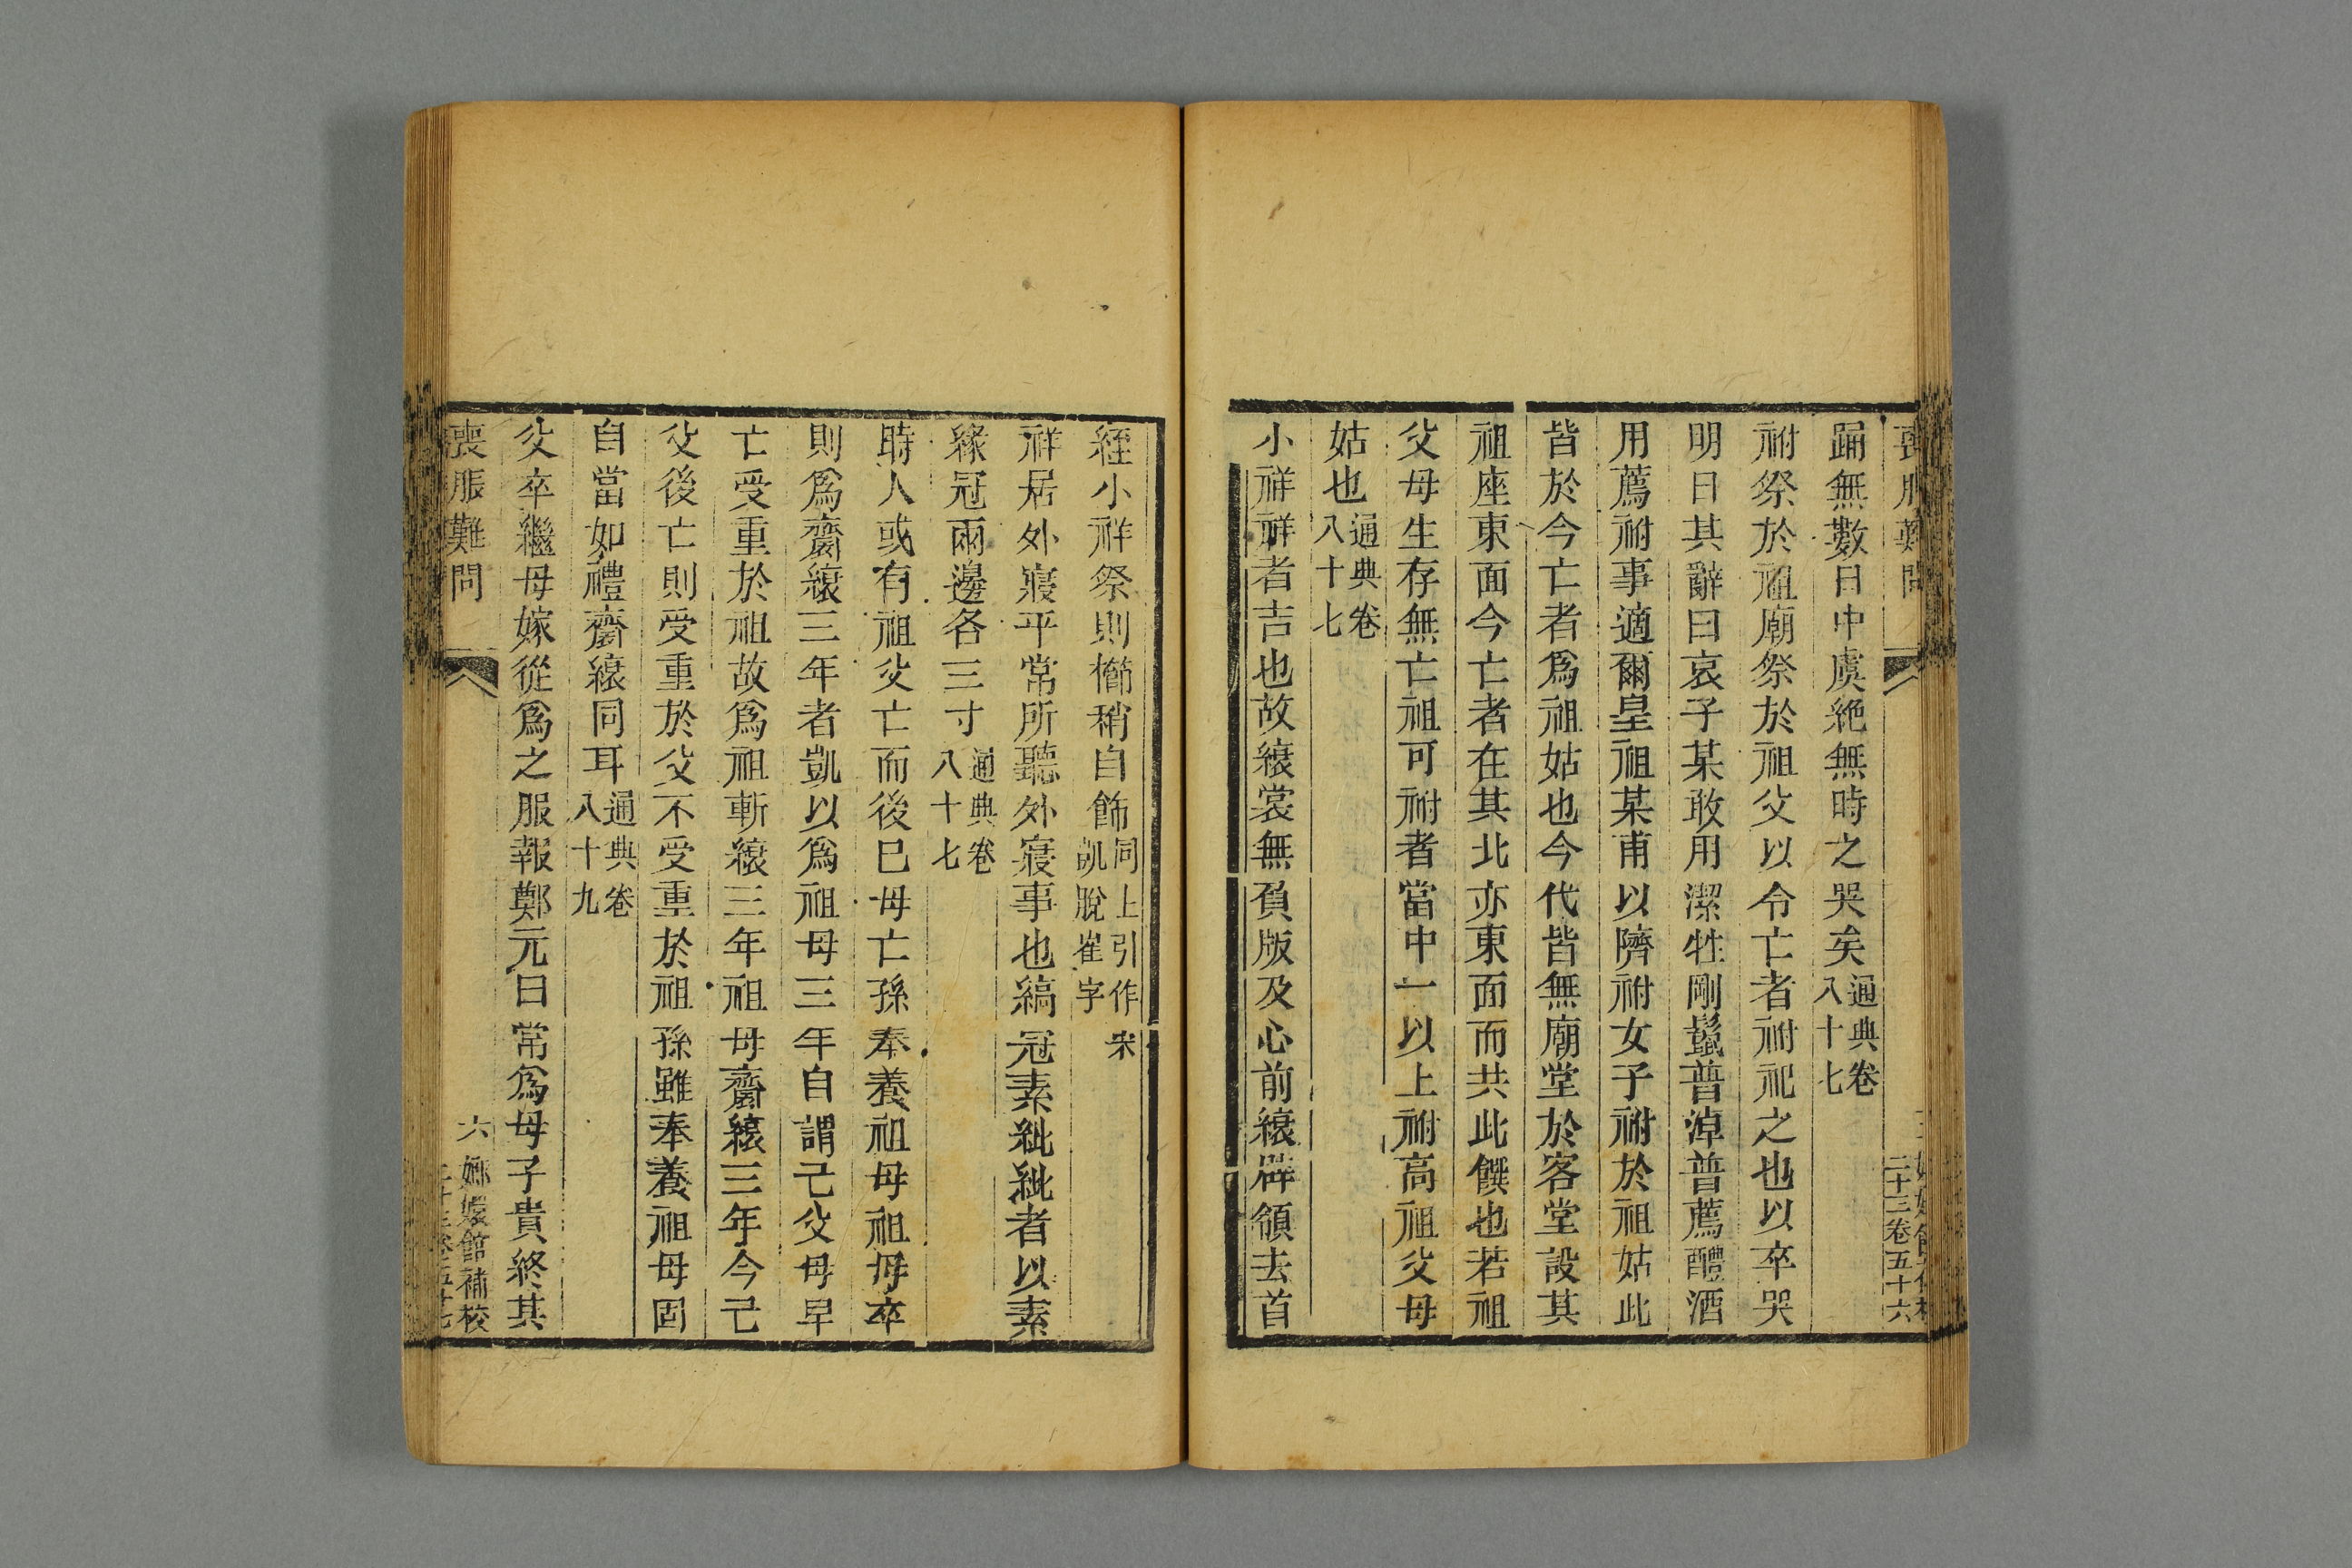 喪服難問
二十三卷五十六
踊無數日中虞絶無時之哭矣通典卷八十七
祔祭於祖廟祭於祖父以令亡者祔祀之也以卒哭
明日其辭曰哀子某敢用潔牲剛鬛普淖普薦醴酒
用薦祔事適爾皇祖某甫以隮祔女子祔於祖姑此
皆於今亡者爲祖姑也今代皆無廟堂於客堂設其
祖座東面今亡者在其北亦東面而共此饌也若祖
父母生存無亡祖可祔者當中一以上祔高祖父母
姑也通典卷八十七
小祥祥者吉也故縗裳無負版及心前縗辟領去首
絰小祥祭則櫛稍自飾同上引作宋凱脫崔字
祥居外寢平常所聽外寢事也縞冠素紕紕者以素
緣冠兩邊各三寸通典卷八十七
時人或有祖父亡而後巳母亡孫奉養祖母祖母卒
則爲齎縗三年者凱以爲祖母三年自謂己父母早
亡受重於祖故爲祖斬縗三年祖母齎縗三年今己
父後亡則受重於父不受重於祖孫雖奉養祖母固
自當如禮齎縗同耳通典卷八十九
父卒繼母嫁從爲之服報鄭元曰常爲母子貴終其
喪服難問
六
嫏嬛館補校